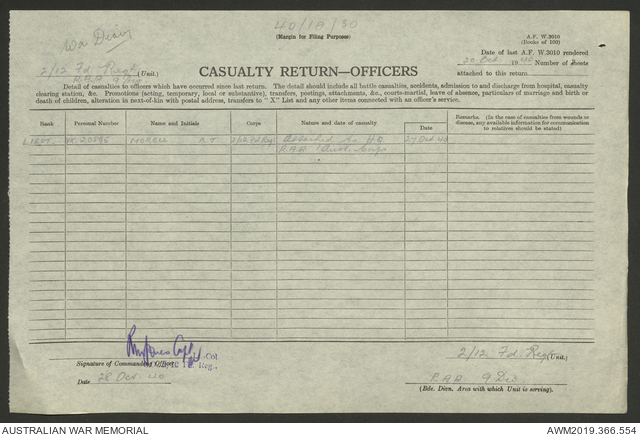 War Diary
40/1A/30
(Margin for Filing Purposes)
A.F. W.3010
(Books of 100)
2/12 Fd Regt (Unit.)
R.A.A. 9 Div
CASUALTY RETURN—OFFICERS
Date of last A.F. W.3010 rendered
20 Oct 1940 Number of sheets
attached to this return
Detail of casualties to officers which have occurred since last return. The detail should include all battle casualties, accidents, admission to and discharge from hospital, casualty
clearing station, &c. Promotions (acting, temporary, local or substantive), transfers, postings, attachments, &c., courts-martial, leave of absence, particulars of marriage and birth or
death of children, alteration in next-of-kin with postal address, transfers to "X" List and any other items connected with an officer's service.
Rank
Personal Number
Name and Initials
Corps
Nature and date of casualty
Date
Remarks. (In the case of casualties from wounds or
disease, any available information for communication
to relatives should be stated)
LIEUT. VX 20595 MORELL R T 2/12 Fd Regt Attached to H.Q. 27 Oct 40
R.A.A.
Capt
Lt.-Col
Signature of Commanding Officer
Reg.,
Date 28 Oct 40
2/12 Fd Regt (Unit.)
R.A.A. 9 Div
(Bde. Divn. Area with which Unit is serving).
AUSTRALIAN WAR MEMORIAL
AWM2019.366.554